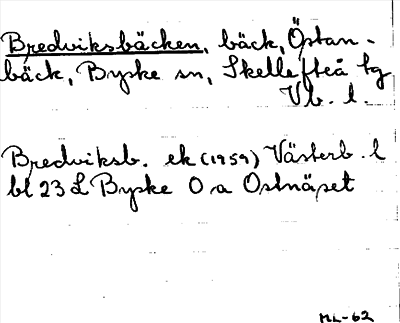 Bredviksbäcken, bäck, Östan-
bäck, Byske sn, Skellefteå tg
Vb. l.
Bredviksb. ek (1959) Västerb. l
bl 23 L Byske O a Ostnäset
ML-62